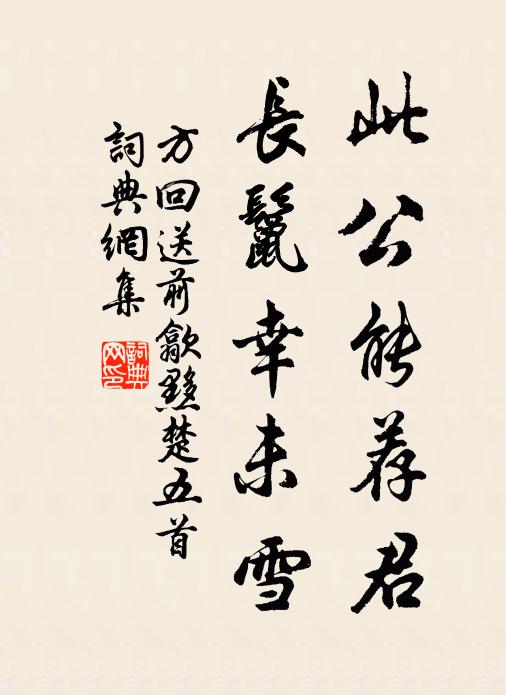 此公能荐君
長鬣幸未雪
方回送前歙黟楚五首
詞典網集
詞典網印